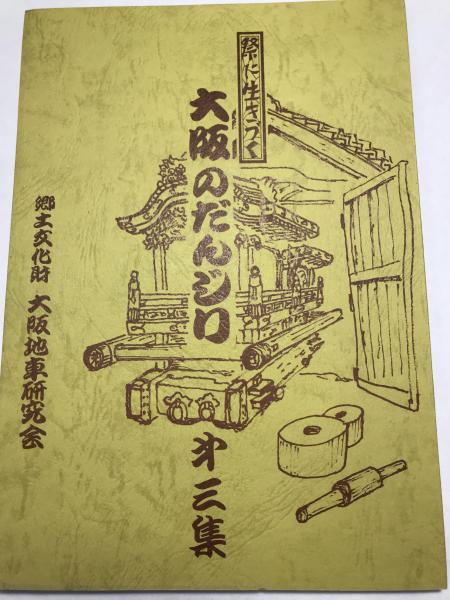 祭に生きづく
大阪のだんジリ
㐧三集
郷土文化財 大阪地車研究会